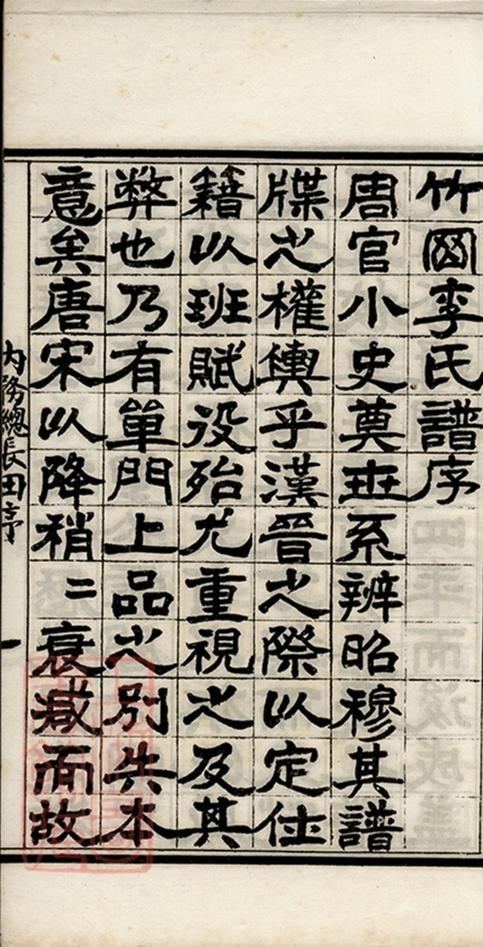 竹园李氏譜序
周官小史奠世系辨昭穆其譜
牒之權輿乎漢晉之際以定仕
籍以班賦役殆尤重視之及其
弊也乃有單門上品之別失本
意矣唐宋以降稍二衰減而故
內務總長田序
一